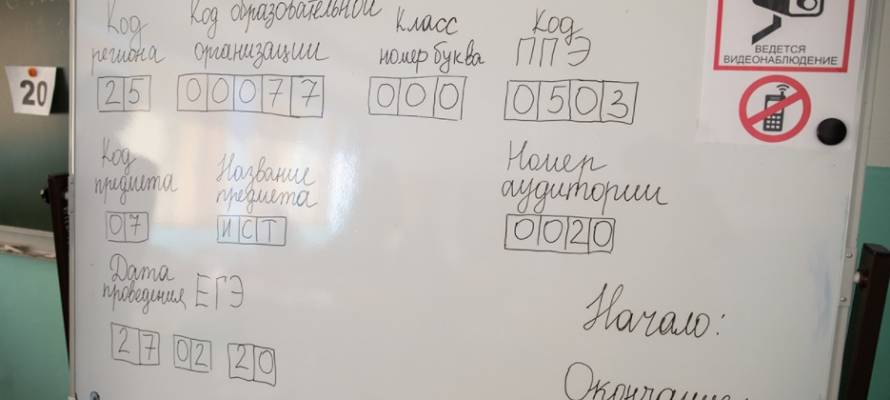 Код региона
25
Код образовательной организации
00077
Класс номер буква
000
Код ППЭ
0503
Код предмета
07
Название предмета
ИСТ
Номер аудитории
0020
Дата проведения ЕГЭ
27 02 20
Начало:
Окончание:
20
ВЕДЕТСЯ
ВИДЕОНАБЛЮДЕНИЕ